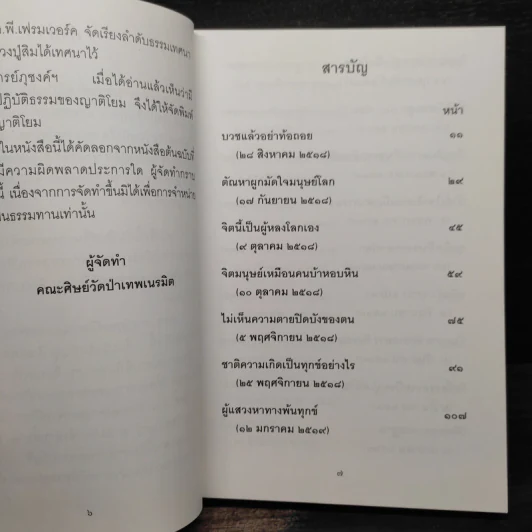 .พี.เฟรมเวอร์ค จัดเรียงลำดับธรรมเทศนา
วงปู่สิมได้เทศนาไว้
ารย์ภุชงค์ฯ เมื่อได้อ่านแล้วเห็นว่ามี
ปฏิบัติธรรมของญาติโยม จึงได้ให้จัดพิมพ์
ญาติโยม
ในหนังสือนี้ได้คัดลอกจากหนังสือต้นฉบับที่
มีความผิดพลาดประการใด ผู้จัดทำกราบ
นี้ เนื่องจากการจัดทำขึ้นมิได้เพื่อการจำหน่าย
นธรรมทานเท่านั้น
ผู้จัดทำ
คณะศิษย์วัดป่าเทพเนรมิต
๖
สารบัญ
หน้า
บวชแล้วอย่าท้อถอย ๑๑
(๒๘ สิงหาคม ๒๕๑๘)
ตัณหาผูกมัดใจมนุษย์โลก ๒๙
(๑๗ กันยายน ๒๕๑๘)
จิตนี้เป็นผู้หลงโลกเอง ๔๕
(๙ ตุลาคม ๒๕๑๘)
จิตมนุษย์เหมือนคนบ้าหอบหิน ๕๙
(๑๐ ตุลาคม ๒๕๑๘)
ไม่เห็นความตายปิดบังของตน ๗๕
(๕ พฤศจิกายน ๒๕๑๘)
ชาติความเกิดเป็นทุกข์อย่างไร ๙๑
(๒๕ พฤศจิกายน ๒๕๑๘)
ผู้แสวงหาทางพ้นทุกข์ ๑๐๗
(๑๒ มกราคม ๒๕๑๙)
๗